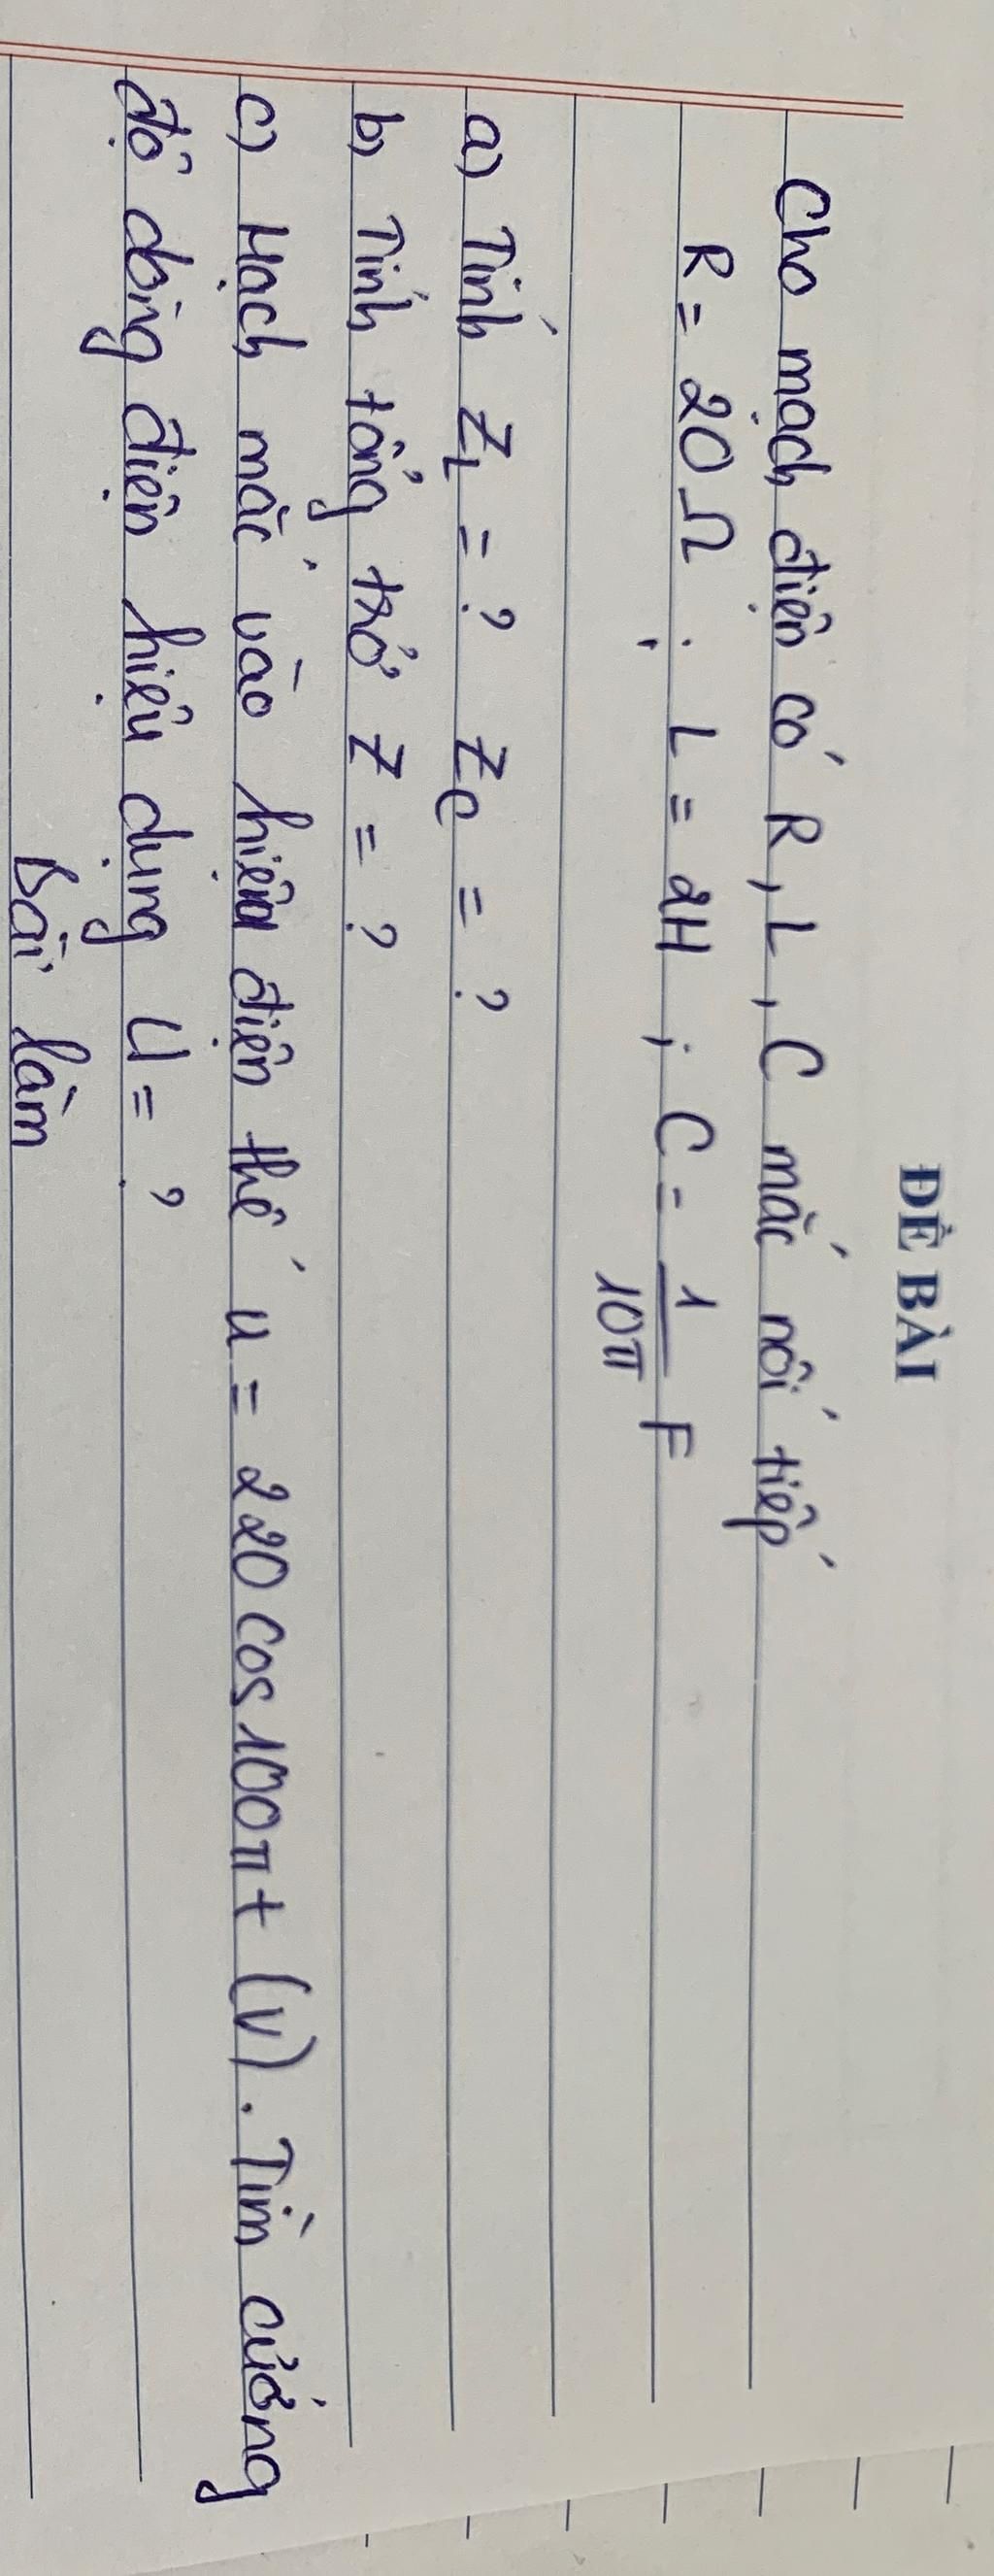 ĐỀ BÀI
Cho mạch điện có R, L, C mắc nối tiếp
R = 20Ω ; L = 2H ; C = 1/10π F
a) Tính ZL = ? ZC = ?
b) Tính tổng trở Z = ?
c) Mạch mắc vào hiệu điện thế u = 220 cos 100πt (V). Tìm cường
độ dòng điện hiệu dụng U = ?
Bài làm